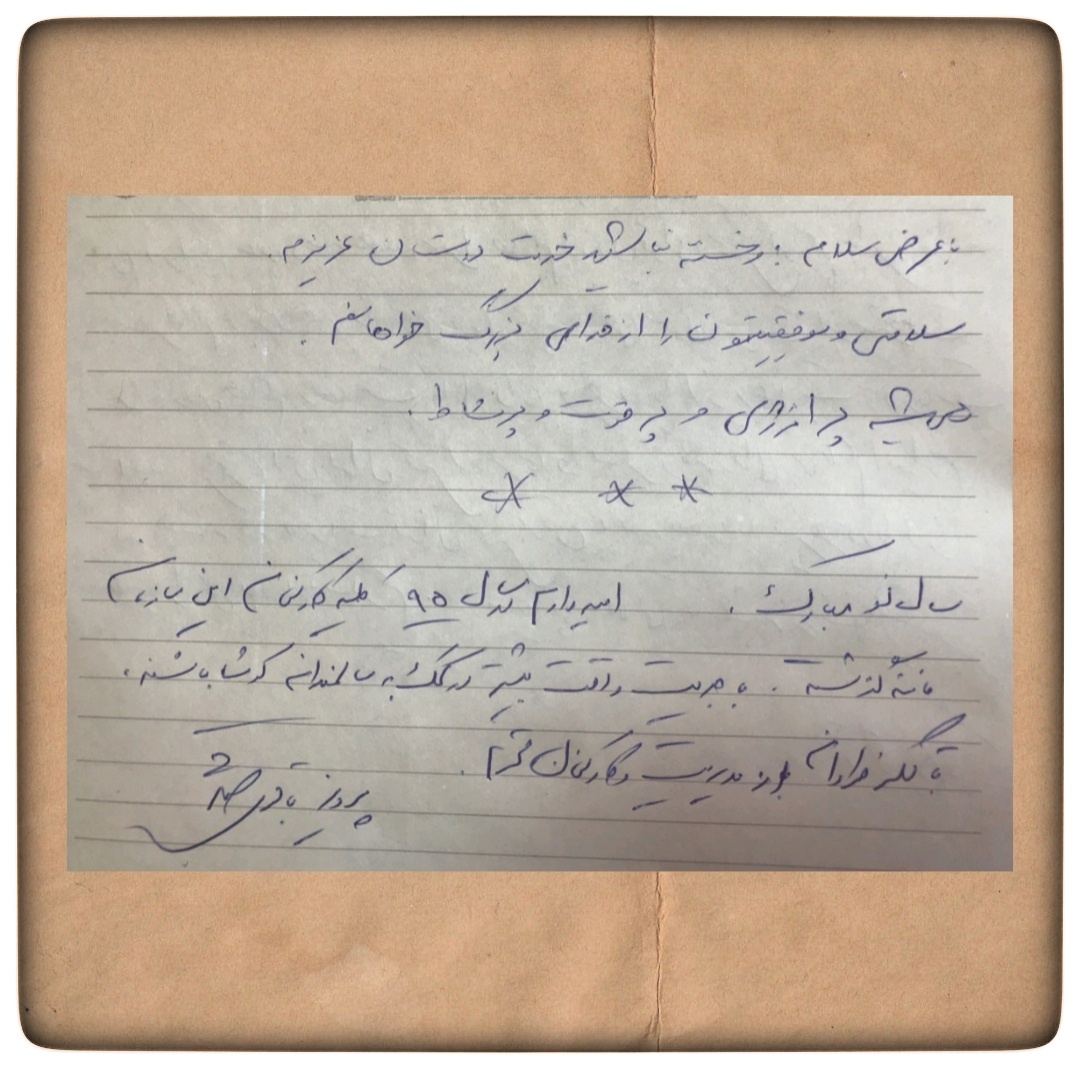 با عرض سلام و خسته نباشید خدمت دوستان عزیزم.
سلامتی و موفقیتتون را از خدای بزرگ خواهانم.
همیشه پر انرژی و پر قوت و پر نشاط.
* * *
سال نو مبارک. امیدوارم در سال ۹۵ کلیه کارکنان این سازمان
مانند گذشته. با جدیت و دقت بیشتر در کمک به سالمندان کوشا باشند.
با تشکر فراوان از مدیریت و کارکنان محترم.
پرویز